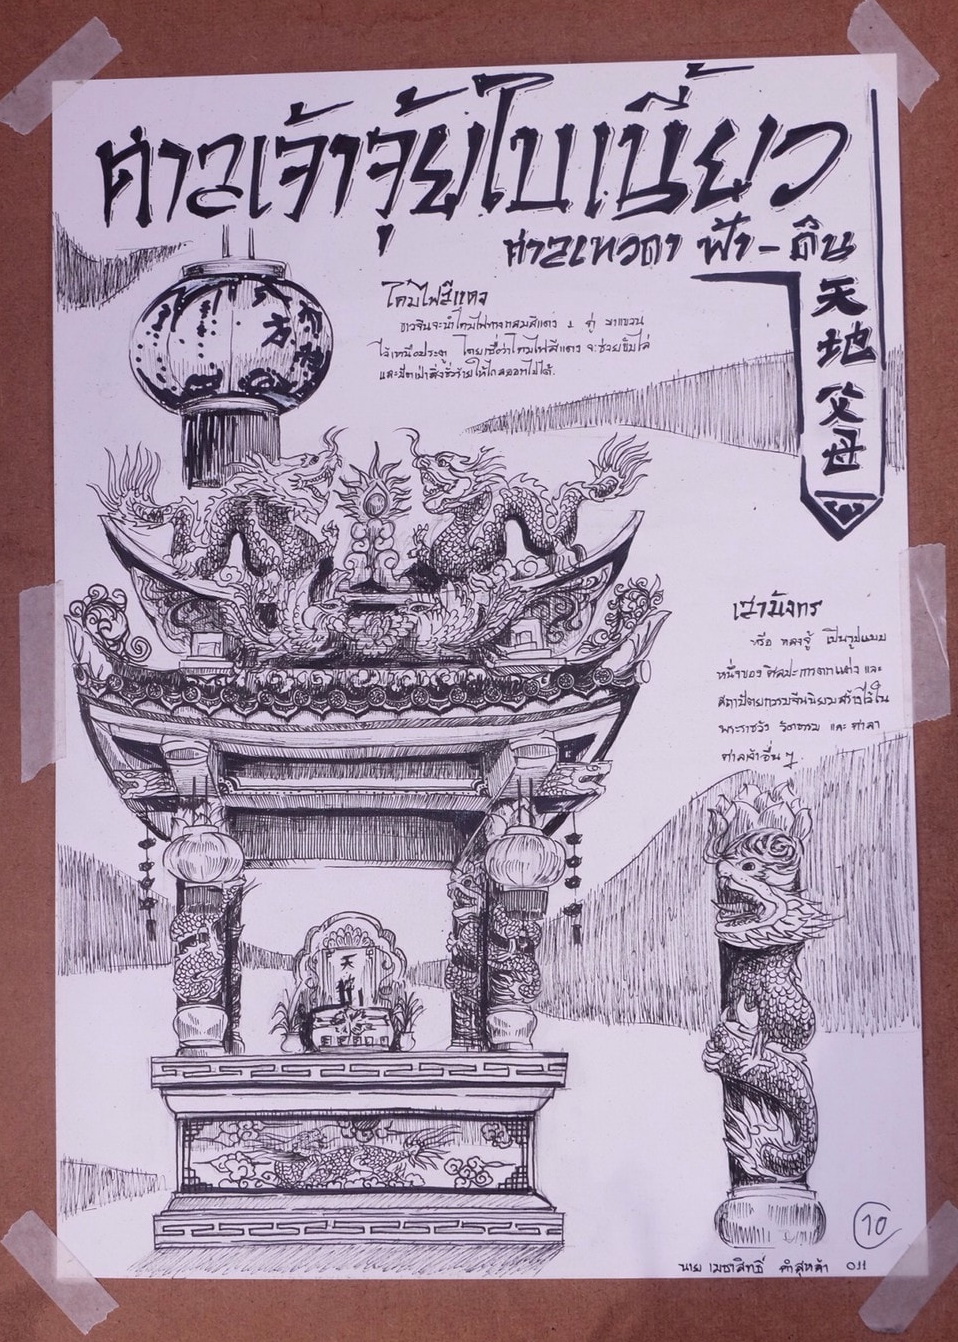 ศาลเจ้าจุ้ยโบเนี้ยว
ศาลเทวดา ฟ้า-ดิน
天地父母
โคมไฟสีแดง
ชาวจีนจะนำโคมไฟทรงกลมสีแดง 1 คู่ มาแขวน
ไว้เหนือประตู โดยเชื่อว่าโคมไฟสีแดง จะช่วยขับไล่
และปัดเป่าสิ่งชั่วร้ายให้ไกลออกไปได้.
方
เสามังกร
หรือ หลงจู้ เป็นรูปแบบ
หนึ่งของ ศิลปะการตกแต่ง และ
สถาปัตยกรรมจีนนิยมสร้างไว้ใน
พระราชวัง วัดอาราม และ ศาลา
ศาลเจ้าอื่น ๆ
天
10
นาย เมธาสิทธิ์ คำสุหล้า 011